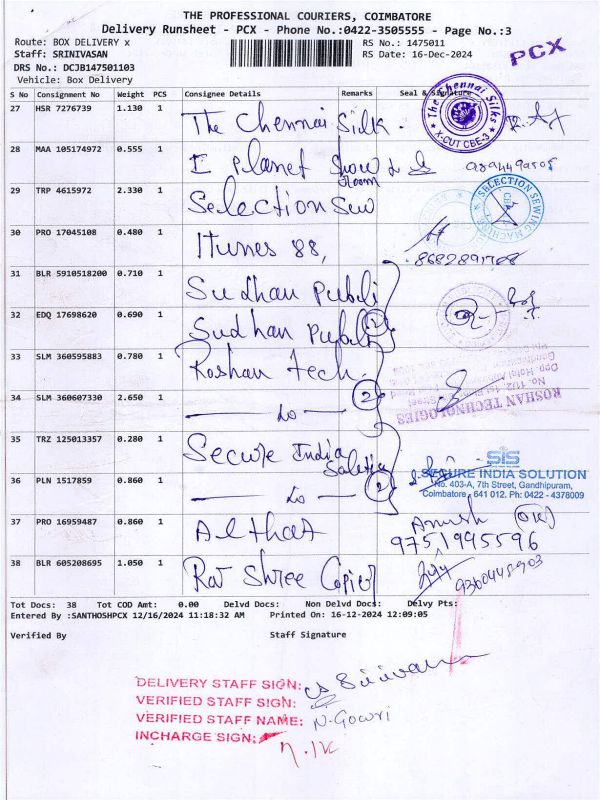 THE PROFESSIONAL COURIERS, COIMBATORE
Delivery Runsheet - PCX - Phone No.:0422-3505555 - Page No.:3
Route: BOX DELIVERY x
RS No.: 1475011
PCX
Staff: SRINIVASAN
RS Date: 16-Dec-2024
DRS No.: DCJB147501103
Vehicle: Box Delivery
S No Consignment No Weight PCS Consignee Details Remarks Seal & Signature
27 HSR 7276739 1.130 1 The Chennai Silk.
The Chennai Silks
X-CUT CBE-3
28 MAA 105174972 0.555 1 I Planet Show Room
29 TRP 4615972 2.330 1 Selection Sew
SELECTION SEWING MACHINE
30 PRO 17045108 0.480 1 Itunes 88,
31 BLR 5910518200 0.710 1 Sudhan Pubeli
32 EDQ 17698620 0.690 1 Sudhan Pubeli 2
33 SLM 360595883 0.780 1 Roshan tech.
ROSHAN TECHNOLOGIES
34 SLM 360607330 2.650 1 — do — 2
35 TRZ 125013357 0.280 1 Secure India
SIS
SECURE INDIA SOLUTION
No. 403-A, 7th Street, Gandhipuram,
Coimbatore - 641 012. Ph: 0422 - 4378009
36 PLN 1517859 0.860 1 — do — 2
37 PRO 16959487 0.860 1 Althaf
(OK)
9751995596
38 BLR 605208695 1.050 1 Raj Shree Copier
9360448903
Tot Docs: 38 Tot COD Amt: 0.00 Delvd Docs: Non Delvd Docs: Delvy Pts:
Entered By :SANTHOSHPCX 12/16/2024 11:18:32 AM Printed On: 16-12-2024 12:09:05
Verified By Staff Signature
DELIVERY STAFF SIGN:
VERIFIED STAFF SIGN:
VERIFIED STAFF NAME: N. Gowri
INCHARGE SIGN: